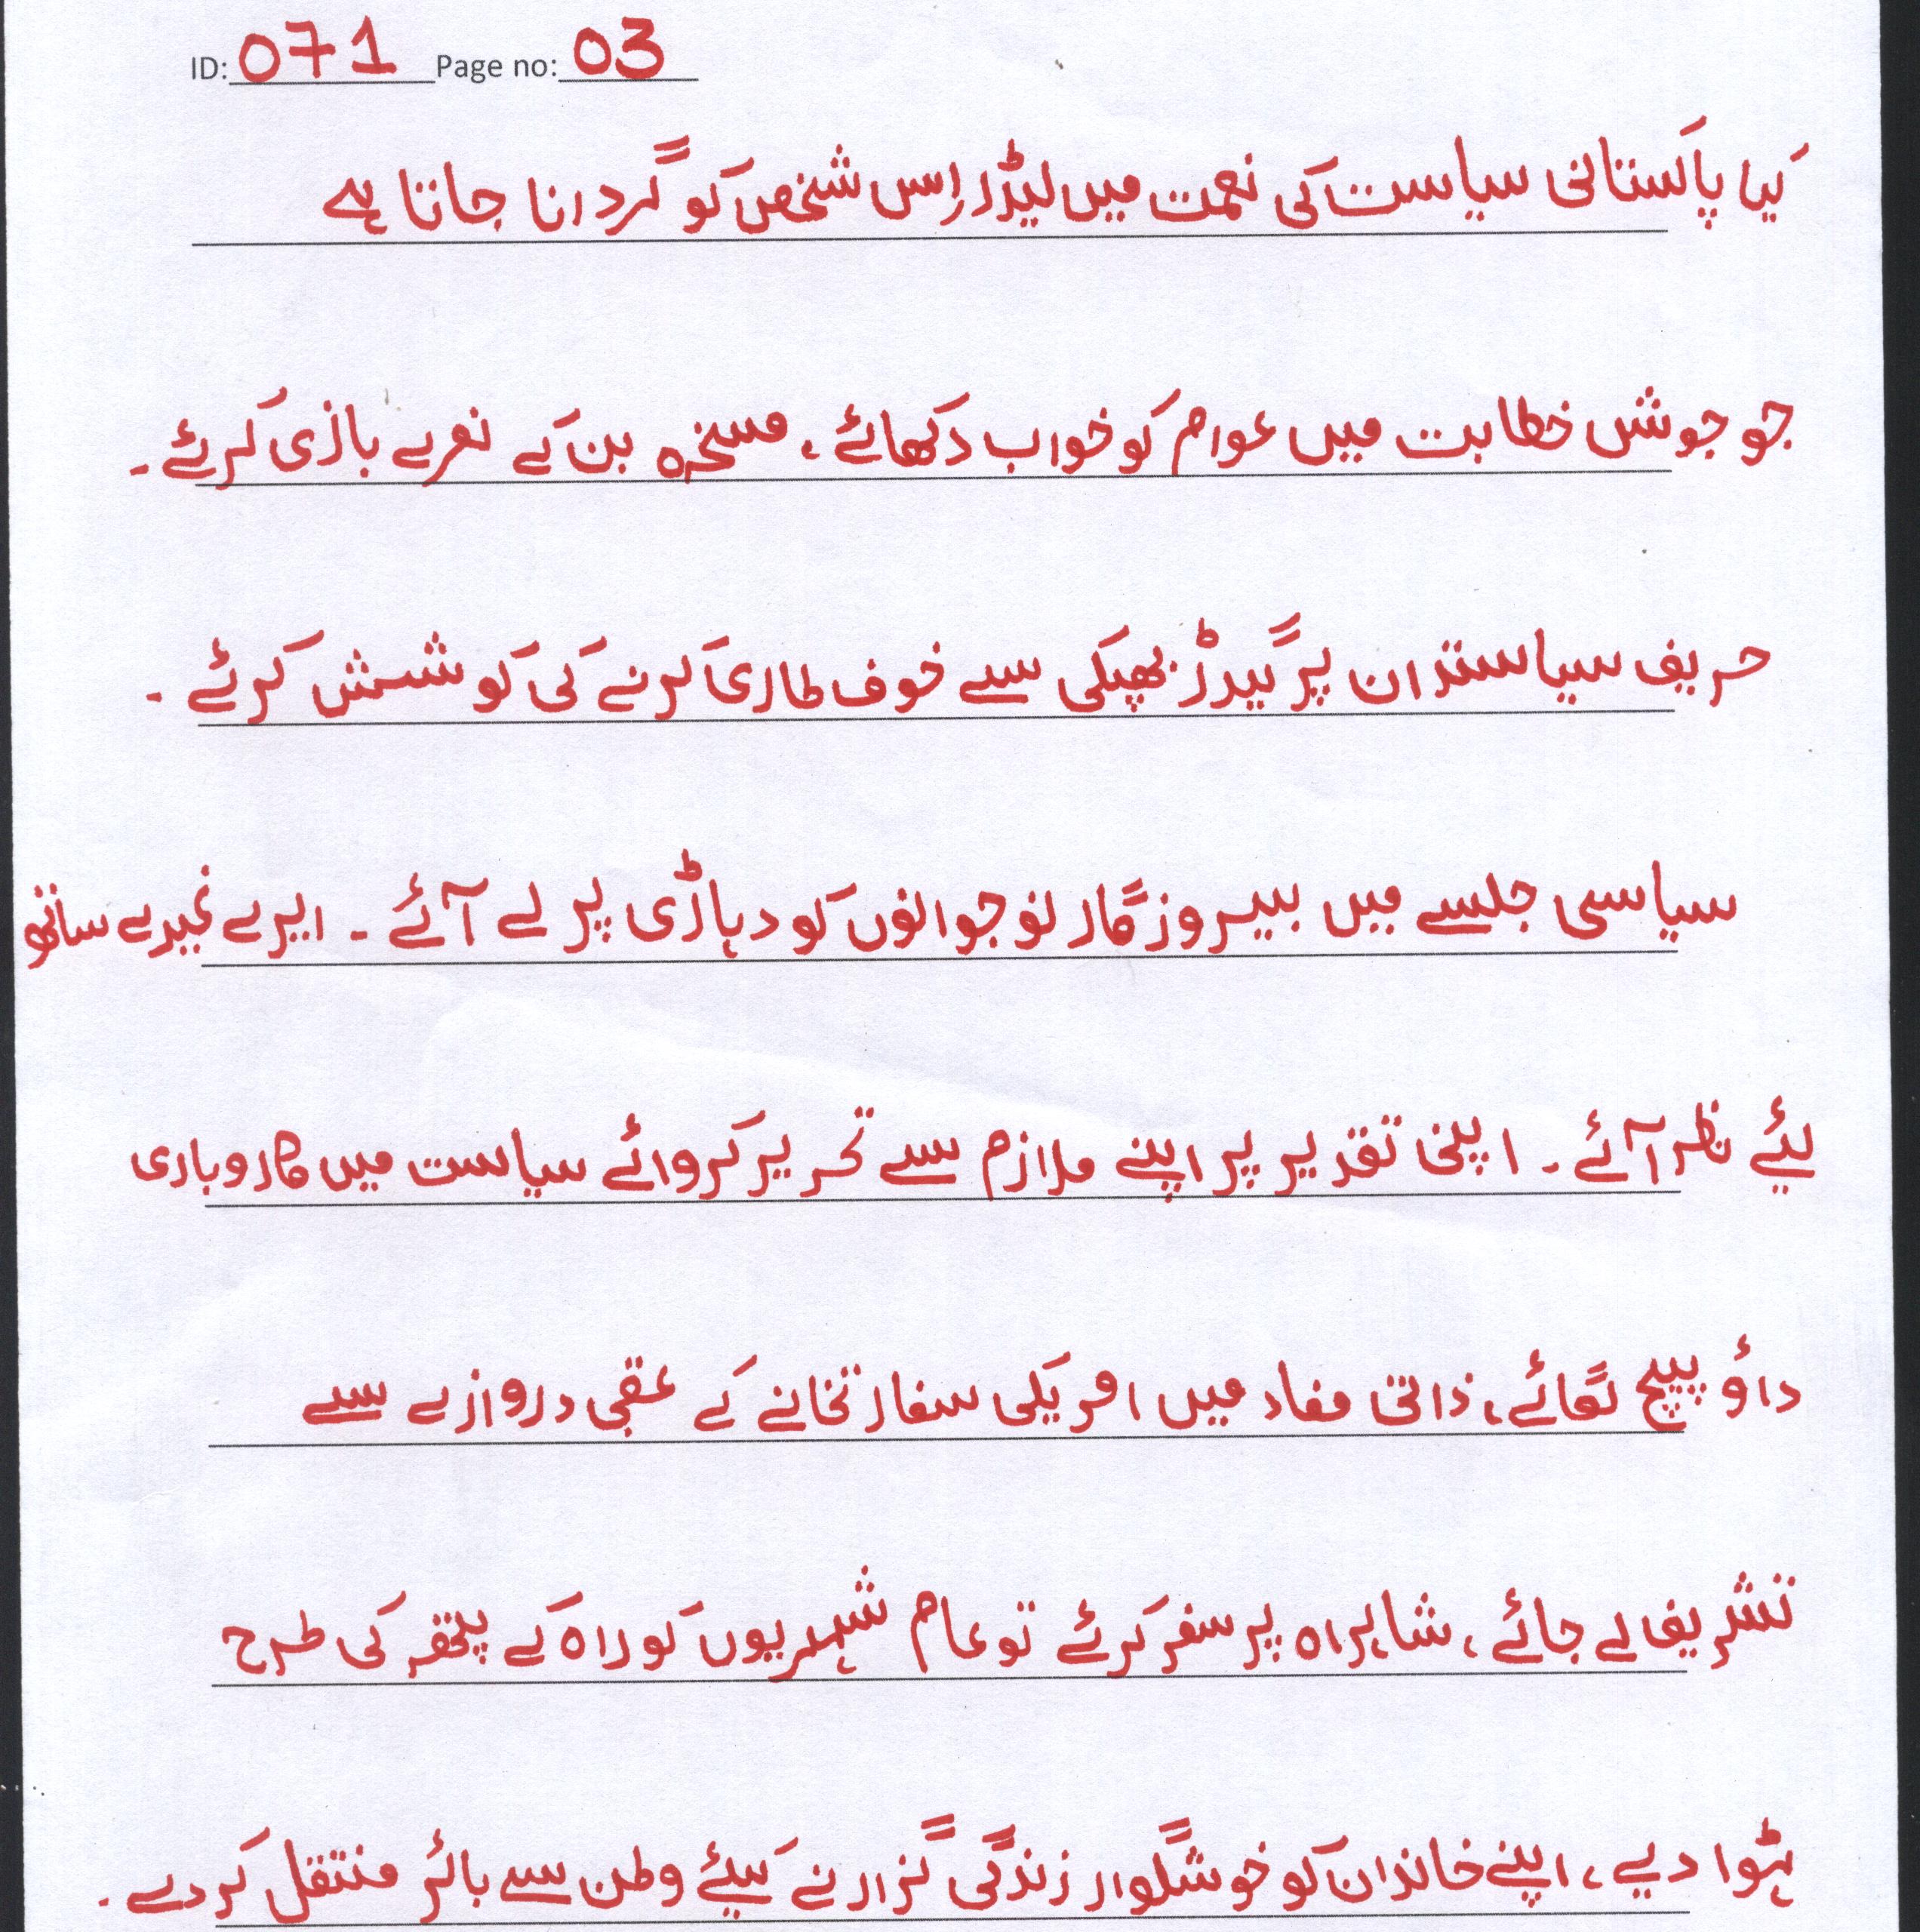 ID: 071 Page no: 03
کیا پاکستانی سیاست کی نعمت میں لیڈر اِس شخص کو گردانا جاتا ہے
جو جوش خطابت میں عوام کو خواب دکھائے، مسخرہ بن کے نعرے بازی کرئے۔
حریف سیاستدان پر گیدڑ بھپکی سے خوف طاری کرنے کی کوشش کرئے۔
سیاسی جلسے میں بیروزگار نوجوانوں کو دہاڑی پر لے آئے۔ ایرے غیرے ساتھ
لیئے نظر آئے۔ اپنی تقدیر پر اپنے ملازم سے تحریر کروائے سیاست میں کاروباری
داؤ پیچ لگائے، ذاتی مفاد میں امریکی سفارتخانے کے عقبی دروازے سے
تشریف لے جائے، شاہراہ پر سفر کرئے تو عام شہریوں کو راہ کے پتھر کی طرح
ہٹوا دیے، اپنے خاندان کو خوشگوار زندگی گزارنے کیلئے وطن سے باہر منتقل کر دے۔